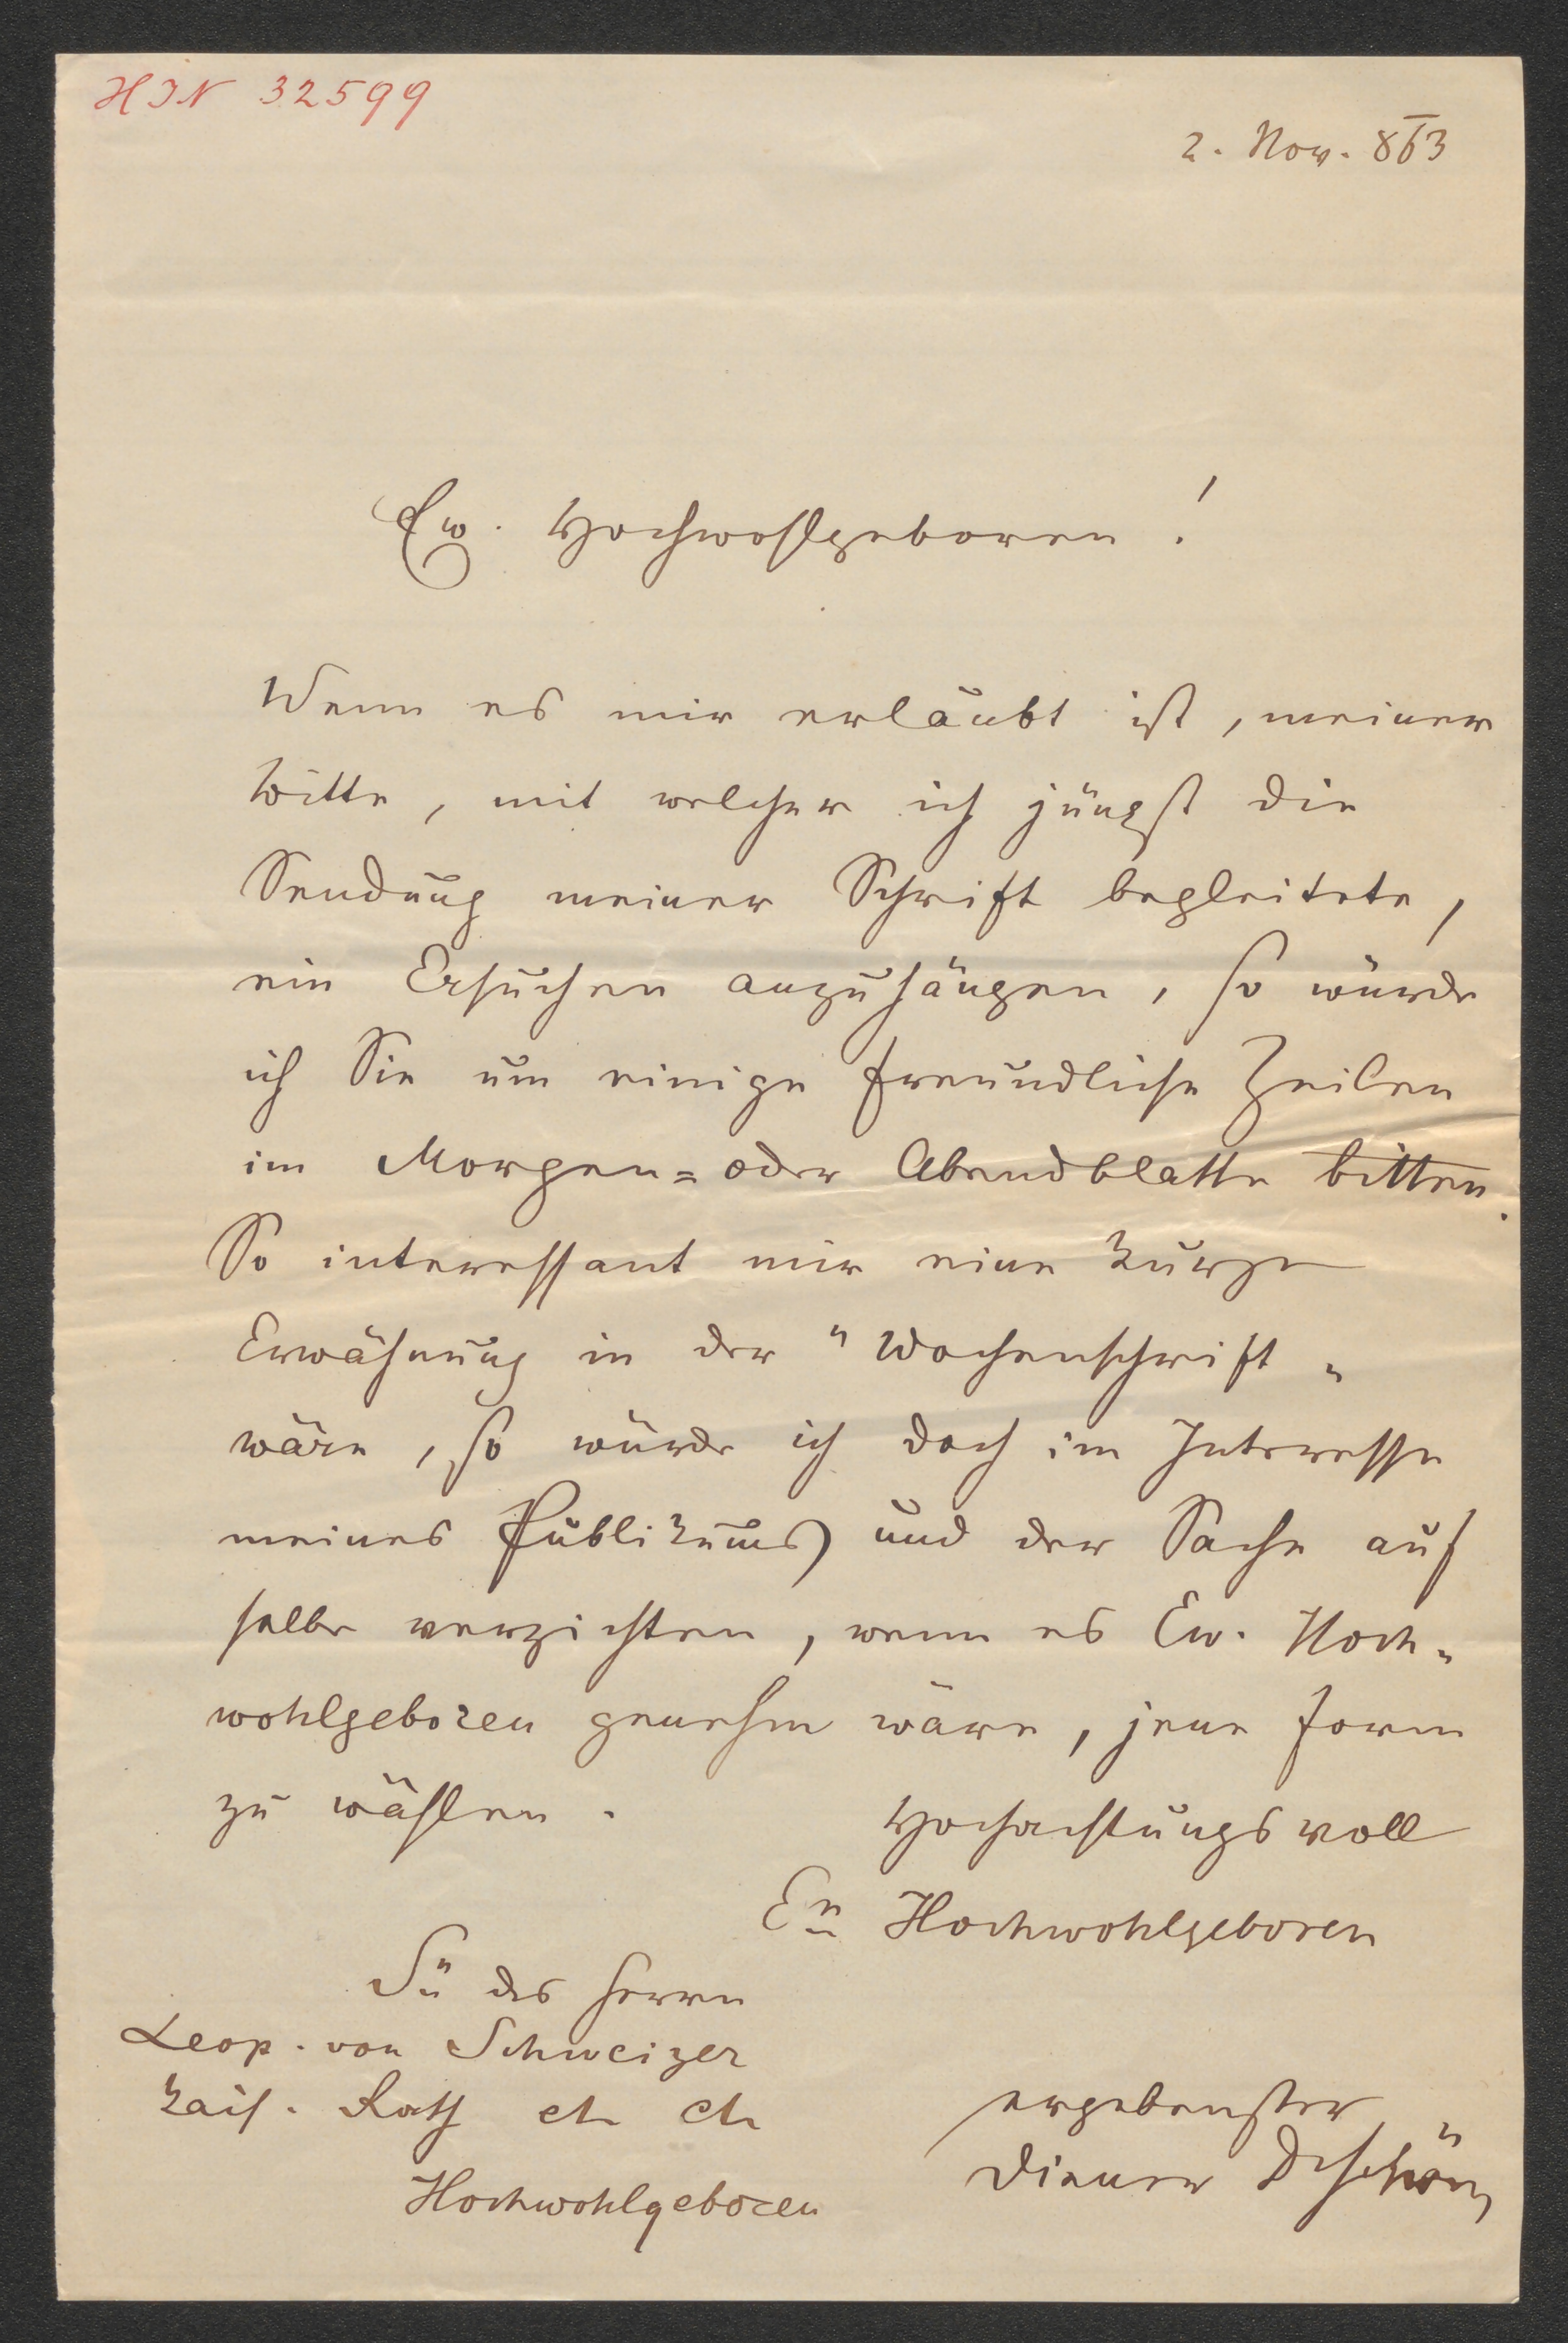 HIN 32599
2. Nov. 863
Ew. Hochwohlgeboren!
Wenn es mir erlaubt ist, meiner
Bitte, mit welcher ich jüngst die
Sendung meiner Schrift begleitete,
ein Ersuchen anzuhängen, so würde
ich Sie um einige freundliche Zeilen
im Morgen= oder Abendblatte bitten.
So interessant mir eine kurze
Erwähnung in der "Wochenschrift"
wäre, so würde ich doch im Interesse
meines Publikums und der Sache auf
selbe verzichten, wenn es Ew. Hoch-
wohlgeboren genehm wäre, jene Form
zu wählen.
Hochachtungsvoll
Er Hochwohlgeboren
Sr des Herrn
Leop. von Schweizer
kais. Rath etc etc
Hochwohlgeboren
ergebenster
Diener Dr Schön